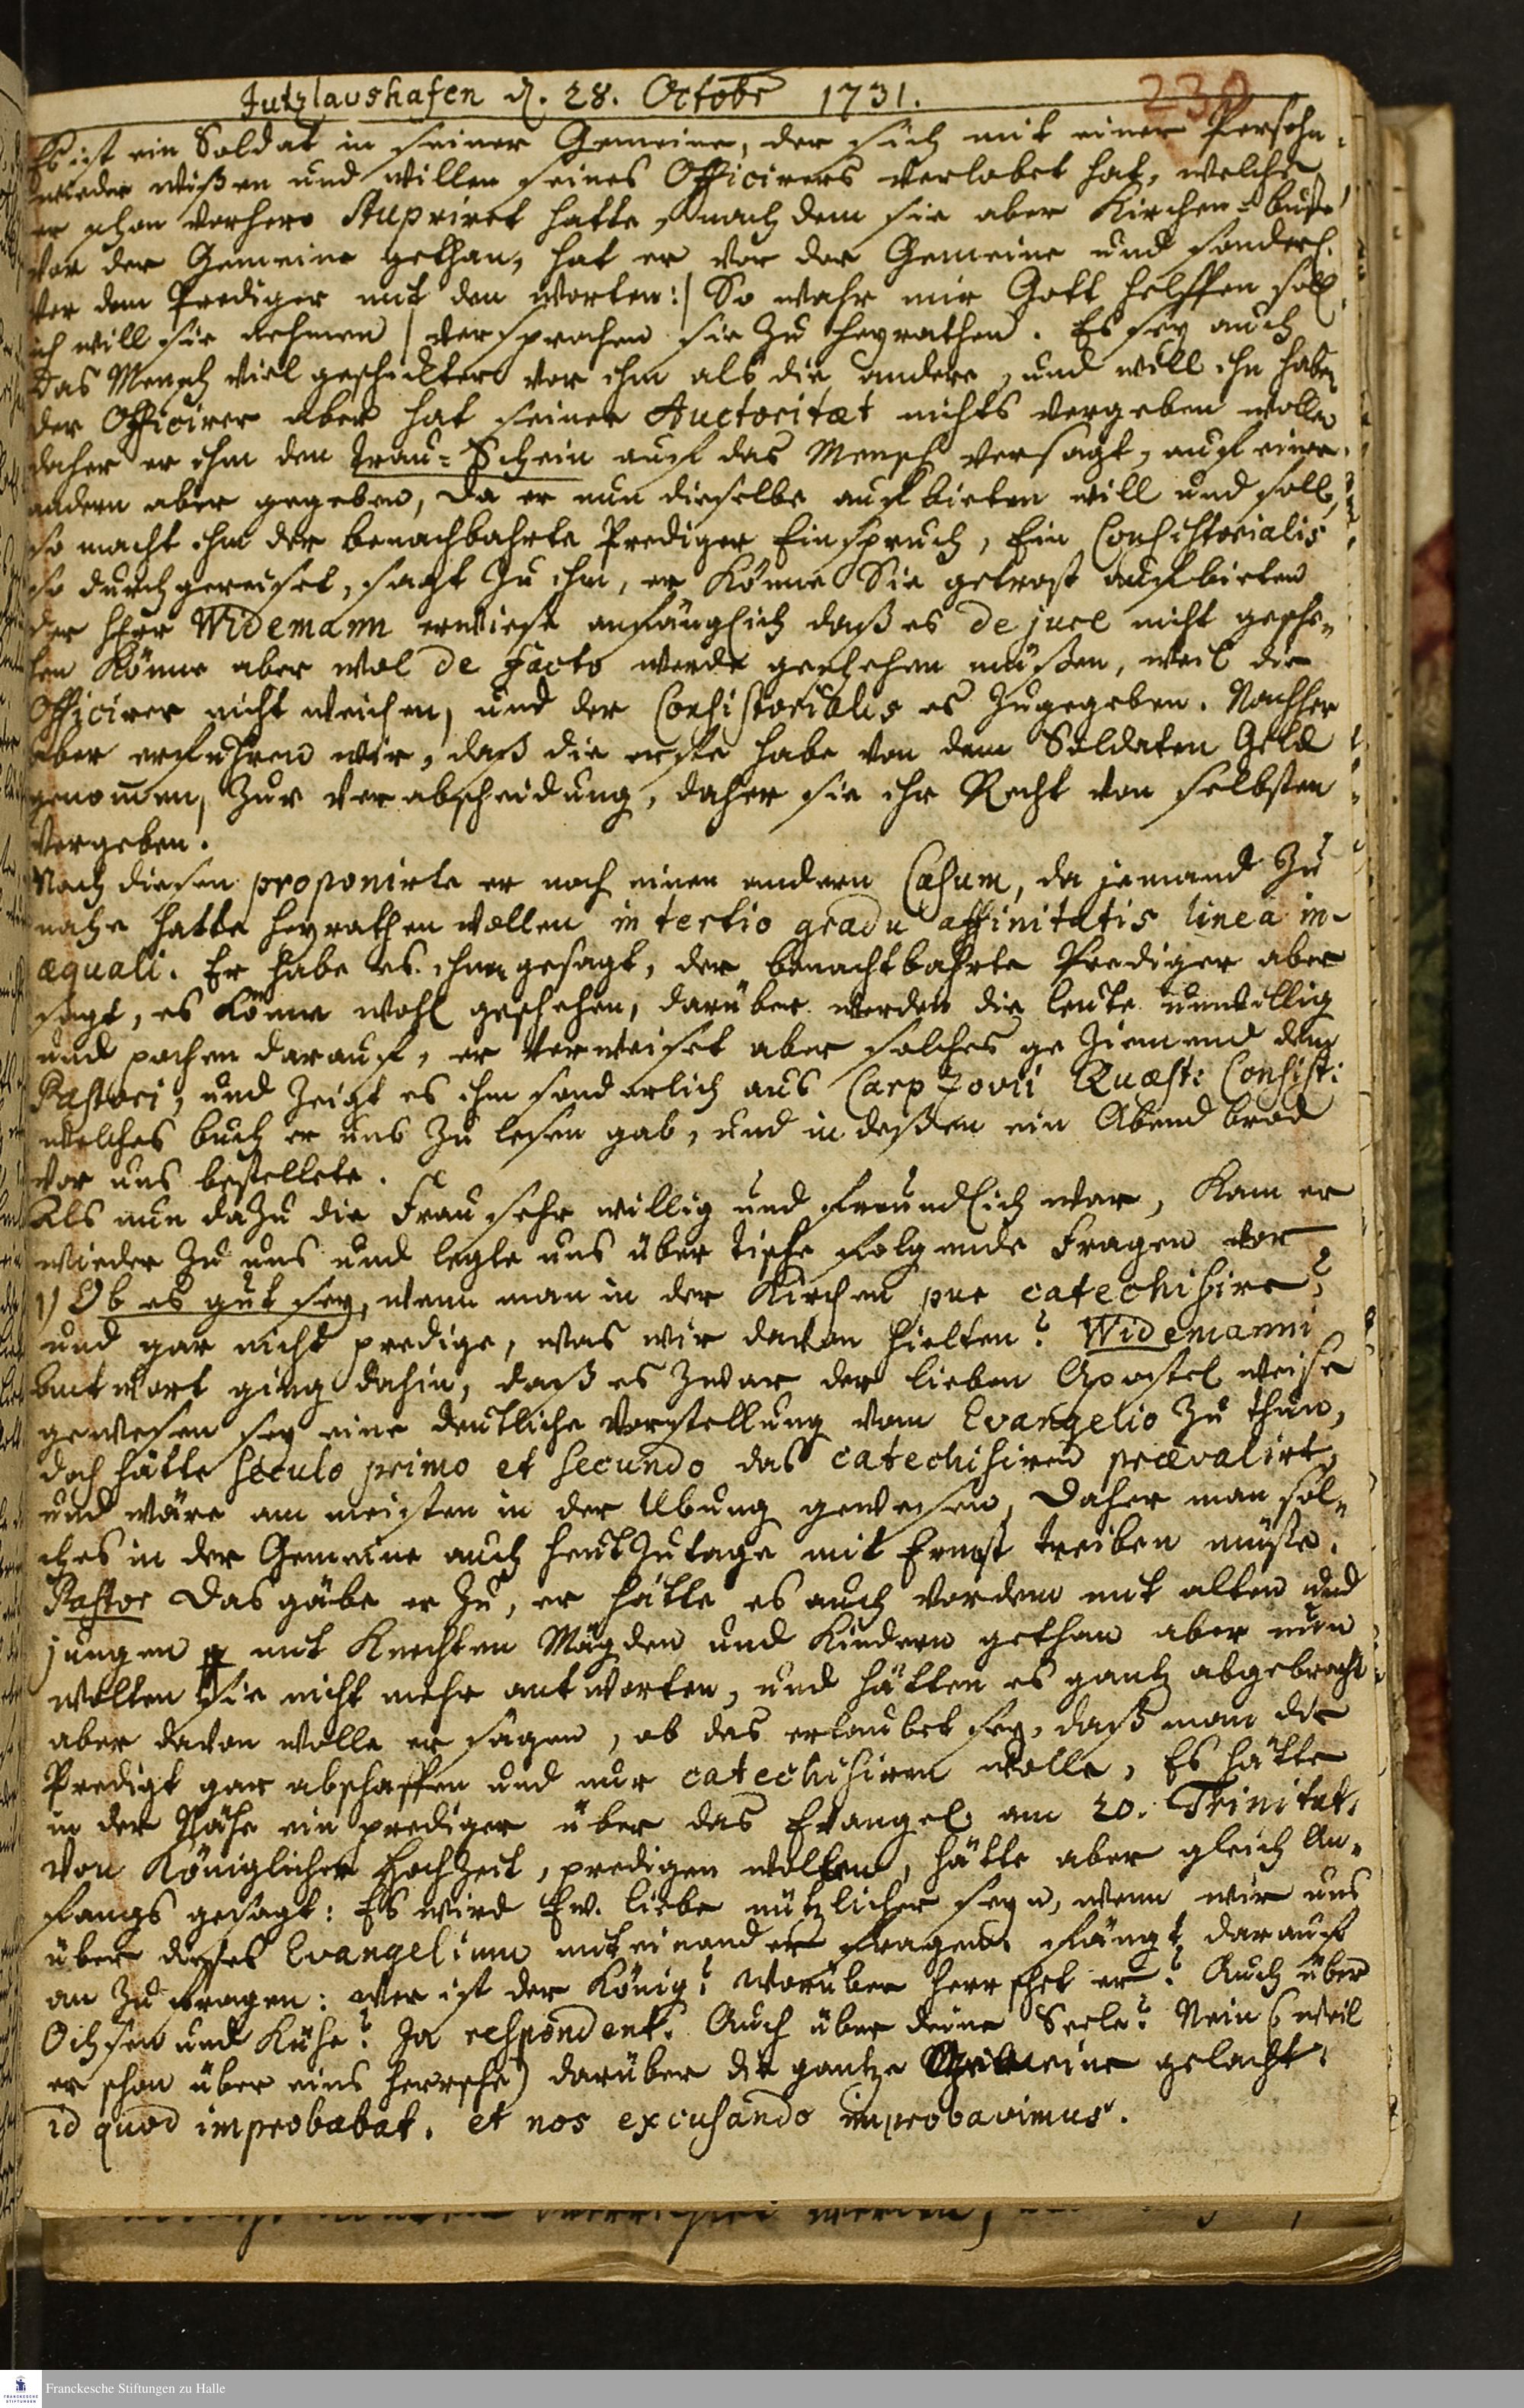 Jutzlavshafen d. 28. Octobr 1731.
230
Es ist ein Soldat in seiner Gemeine, der sich mit einer Persohn
wieder wißen und willen seines Officirers verlobet hat, welche
er schon vorhero stupriret hatte, nach dem sie aber Kirchen-buße
vor der Gemeine gethan, hat er vor der Gemeine und sonderl.
vor dem Prediger mit den worten:/ So wahr mir Gott helffen soll
ich will sie nehmen / versprochen sie zu heyrathen. Es sey auch
das Mensch viel geschickter vor ihm als die andere, und will ihn haben
der Officirer aber hat seiner Auctoritæt nichts vergeben wollen
daher er ihm den Trau-Schein auf das Mensch versagt, auf eine
andern aber gegeben, da er nun dieselbe aufbieten will und soll,
so macht ihm der benachbahrte Prediger Einspruch, Ein Consistorialis
so durchgereiset, sagt zu ihm, er könne Sie getrost aufbieten
der Herr Widemann erwiese anfänglich daß es de jure nicht gesche-
hen könne aber wol de facto werde geschehen müßen, weil die
Officirer nicht weichen, und der Consistorialis es zugegeben. Nachher
aber erfuhren wir, daß die erste habe von dem Soldaten Geld
genom̄en, zur verabscheidung, daher sie ihr Recht von selbsten
vergeben.
Nach diesen proponirte er noch einen andern Casum, da jemand zu
nahe hatte heyrathen wollen in tertio gradu affinitatis linea in-
æquali. Er habe es ihm gesagt, der benachtbahrte Prediger aber
sagt, es könne wohl geschehen, darüber werden die leute unwillig
und pochen darauf, er verweiset aber solches geziemend dem
Pastori, und zeigt es ihm sonderlich aus Carpzovii Quæst: Consist:
welches buch er uns zu lesen gab, und indeßen ein Abendbrod
vor uns bestellete.
Als nun dazu die Frau sehr willig und freundlich war, kam er
wieder zu uns und legte uns über tische folgende Fragen vor
1) Ob es gut sey, wenn man in der Kirchen pur catechisire,
und gar nicht predige, was wir davon hielten? Widemanni
antwort ging dahin, daß es zwar der lieben Apostel weise
gewesen sey eine deutliche Vorstellung vom Evangelio zu thun,
doch hätte seculo primo et secundo das catechisiren prævalirt,
und wäre am meisten in der Ubung gewesen, daher man sol-
ches in der Gemeine auch heut zutage mit Ernst treiben müste.
Pastor Das gäbe er zu, er hätte es auch vordem mit alten und
jungen mit Knechten Mägden und Kindern gethan aber nun
wolten sie nicht mehr antworten, und hätten es gantz abgebracht
aber davon wolle er sagen, ob das erlaubet sey, daß man die
Predigt gar abschaffen und nur catechisiren wolle, Es hätte
in der Nähe ein prediger über das Evangel. am 20. Trinitat.
von Königlicher Hochzeit, predigen wollen, hätte aber gleich An-
fangs gesagt: Es wird Ew. liebe nützlicher seyn, wenn wir uns
über dieses Evangelium miteinander fragen. fängt darauf
an zu fragen: wer ist der König? worüber herrschet er? Auch über
Ochsen und Kühe? Ja respondent. Auch über deine Seele? Nein (weil
er schon über eins herrsche) darüber die gantze Gemeine gelacht.
id quod improbabat. et nos excusando improbavimus.
Franckesche Stiftungen zu Halle